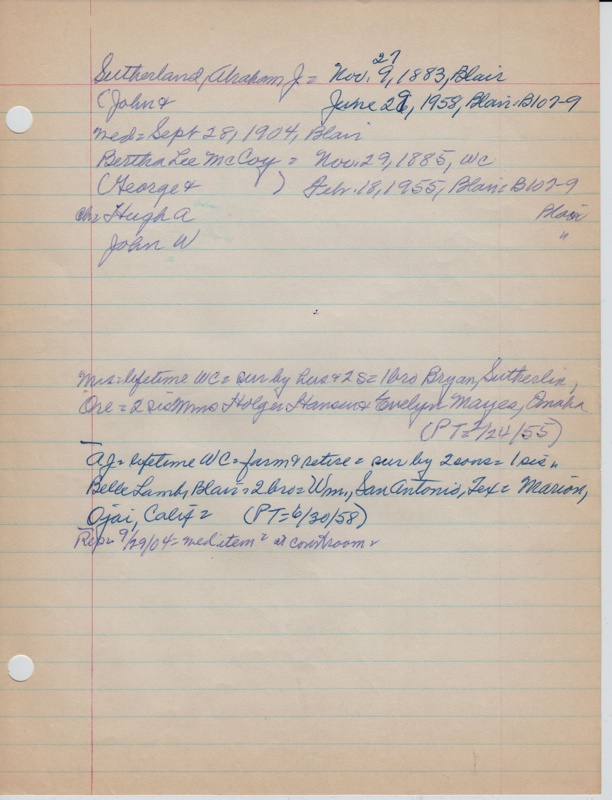 27
Sutherland, Abraham J. = Nov. 9, 1883, Blair
(John & June 29, 1958, Blair = B107-9
med = Sept 28, 1904, Blair
Bertha Lee McCoy = Nov. 29, 1885, WC
(George & ) Febr. 18, 1955, Blair = B107-9
ch = Hugh A Blair
John W "
Mrs = lifetime WC = sur by hus & 2 s = 1 bro Bryan, Sutherlin,
Ore = 2 sis Mmes Holger Hansen & Evelyn Mayes, Omaha
(PT = 2/24/55)
AJ = lifetime WC = farm & retire = sur by 2 sons = 1 sis,
Belle Lamb, Blair = 2 bro = Wm., San Antonio, Tex = Marion,
Ojai, Calif = (PT = 6/30/58)
Rep = 9/29/04 = med item = at courtroom =